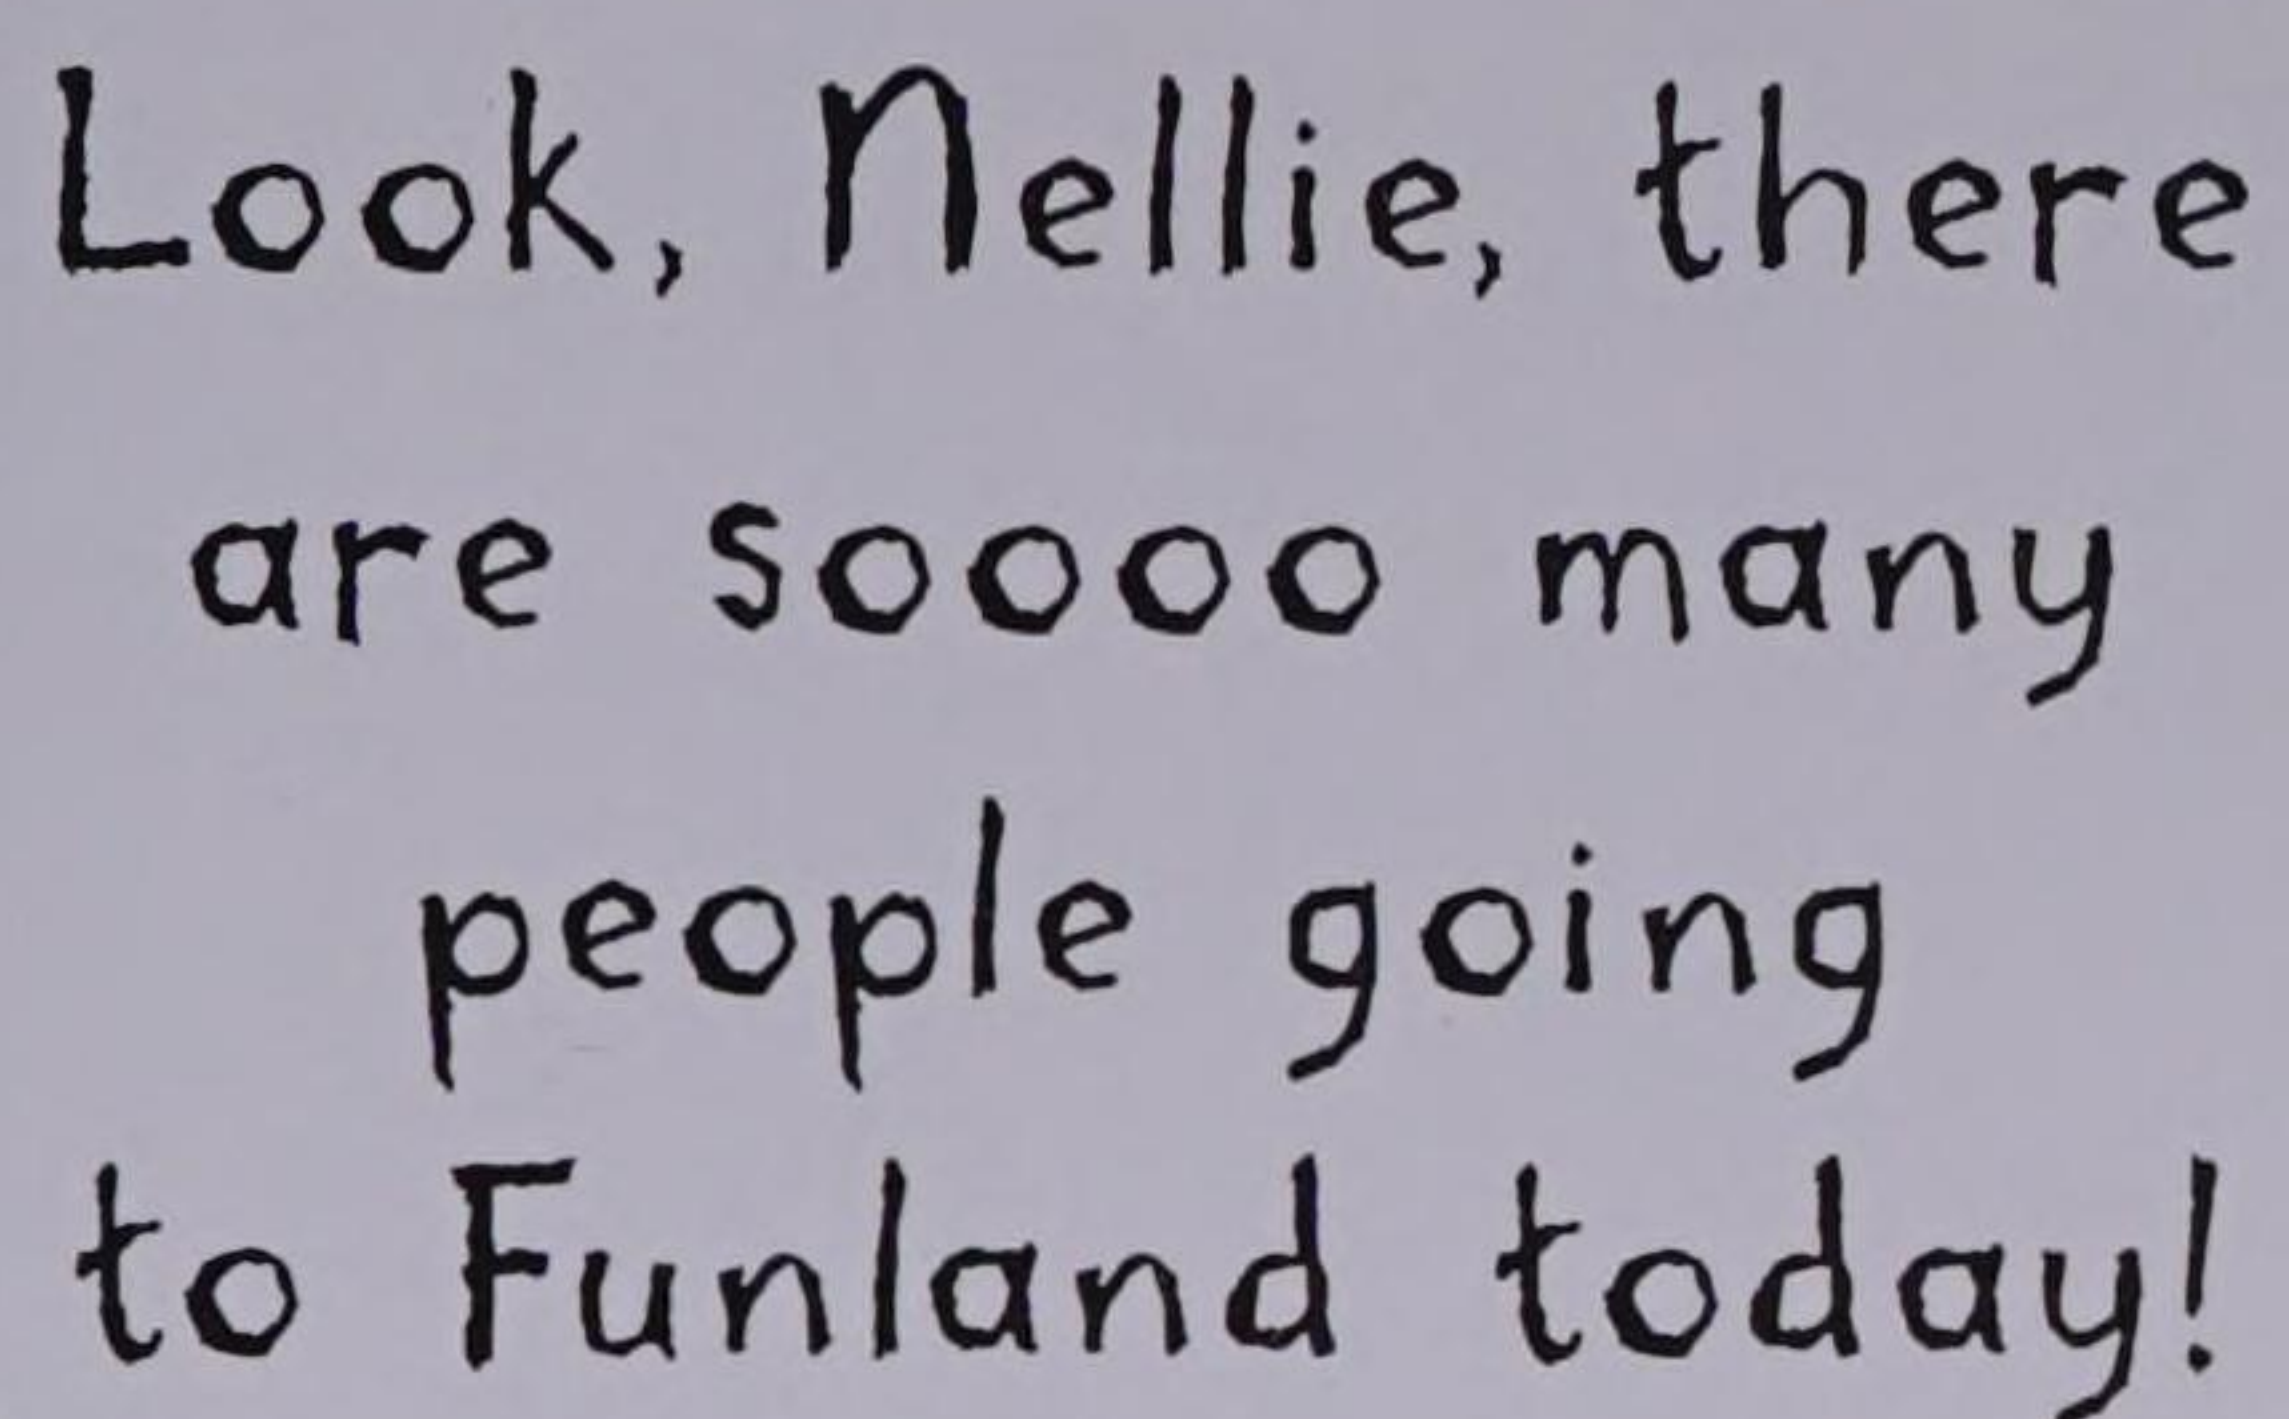 Look, Nellie, there
are soooo many
people going
to Funland today!